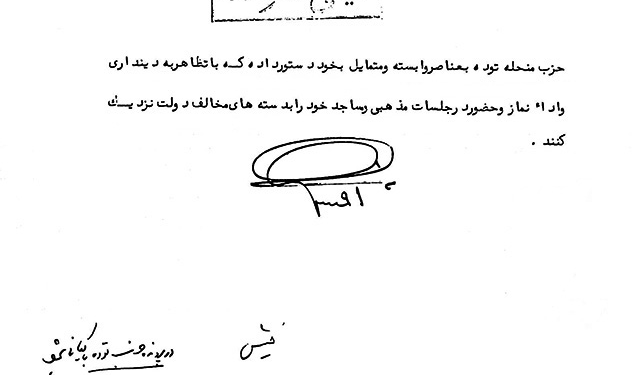 حزب منحله توده بعناصر وابسته ومتمایل بخود دستورداده که با تظاهر به دینداری
واداء نماز وحضور درجلسات مذهبی ومساجد خود را بدسته های مخالف دولت نزدیک
کنند .
فیش
در پرونده حزب توده بایگانی شود